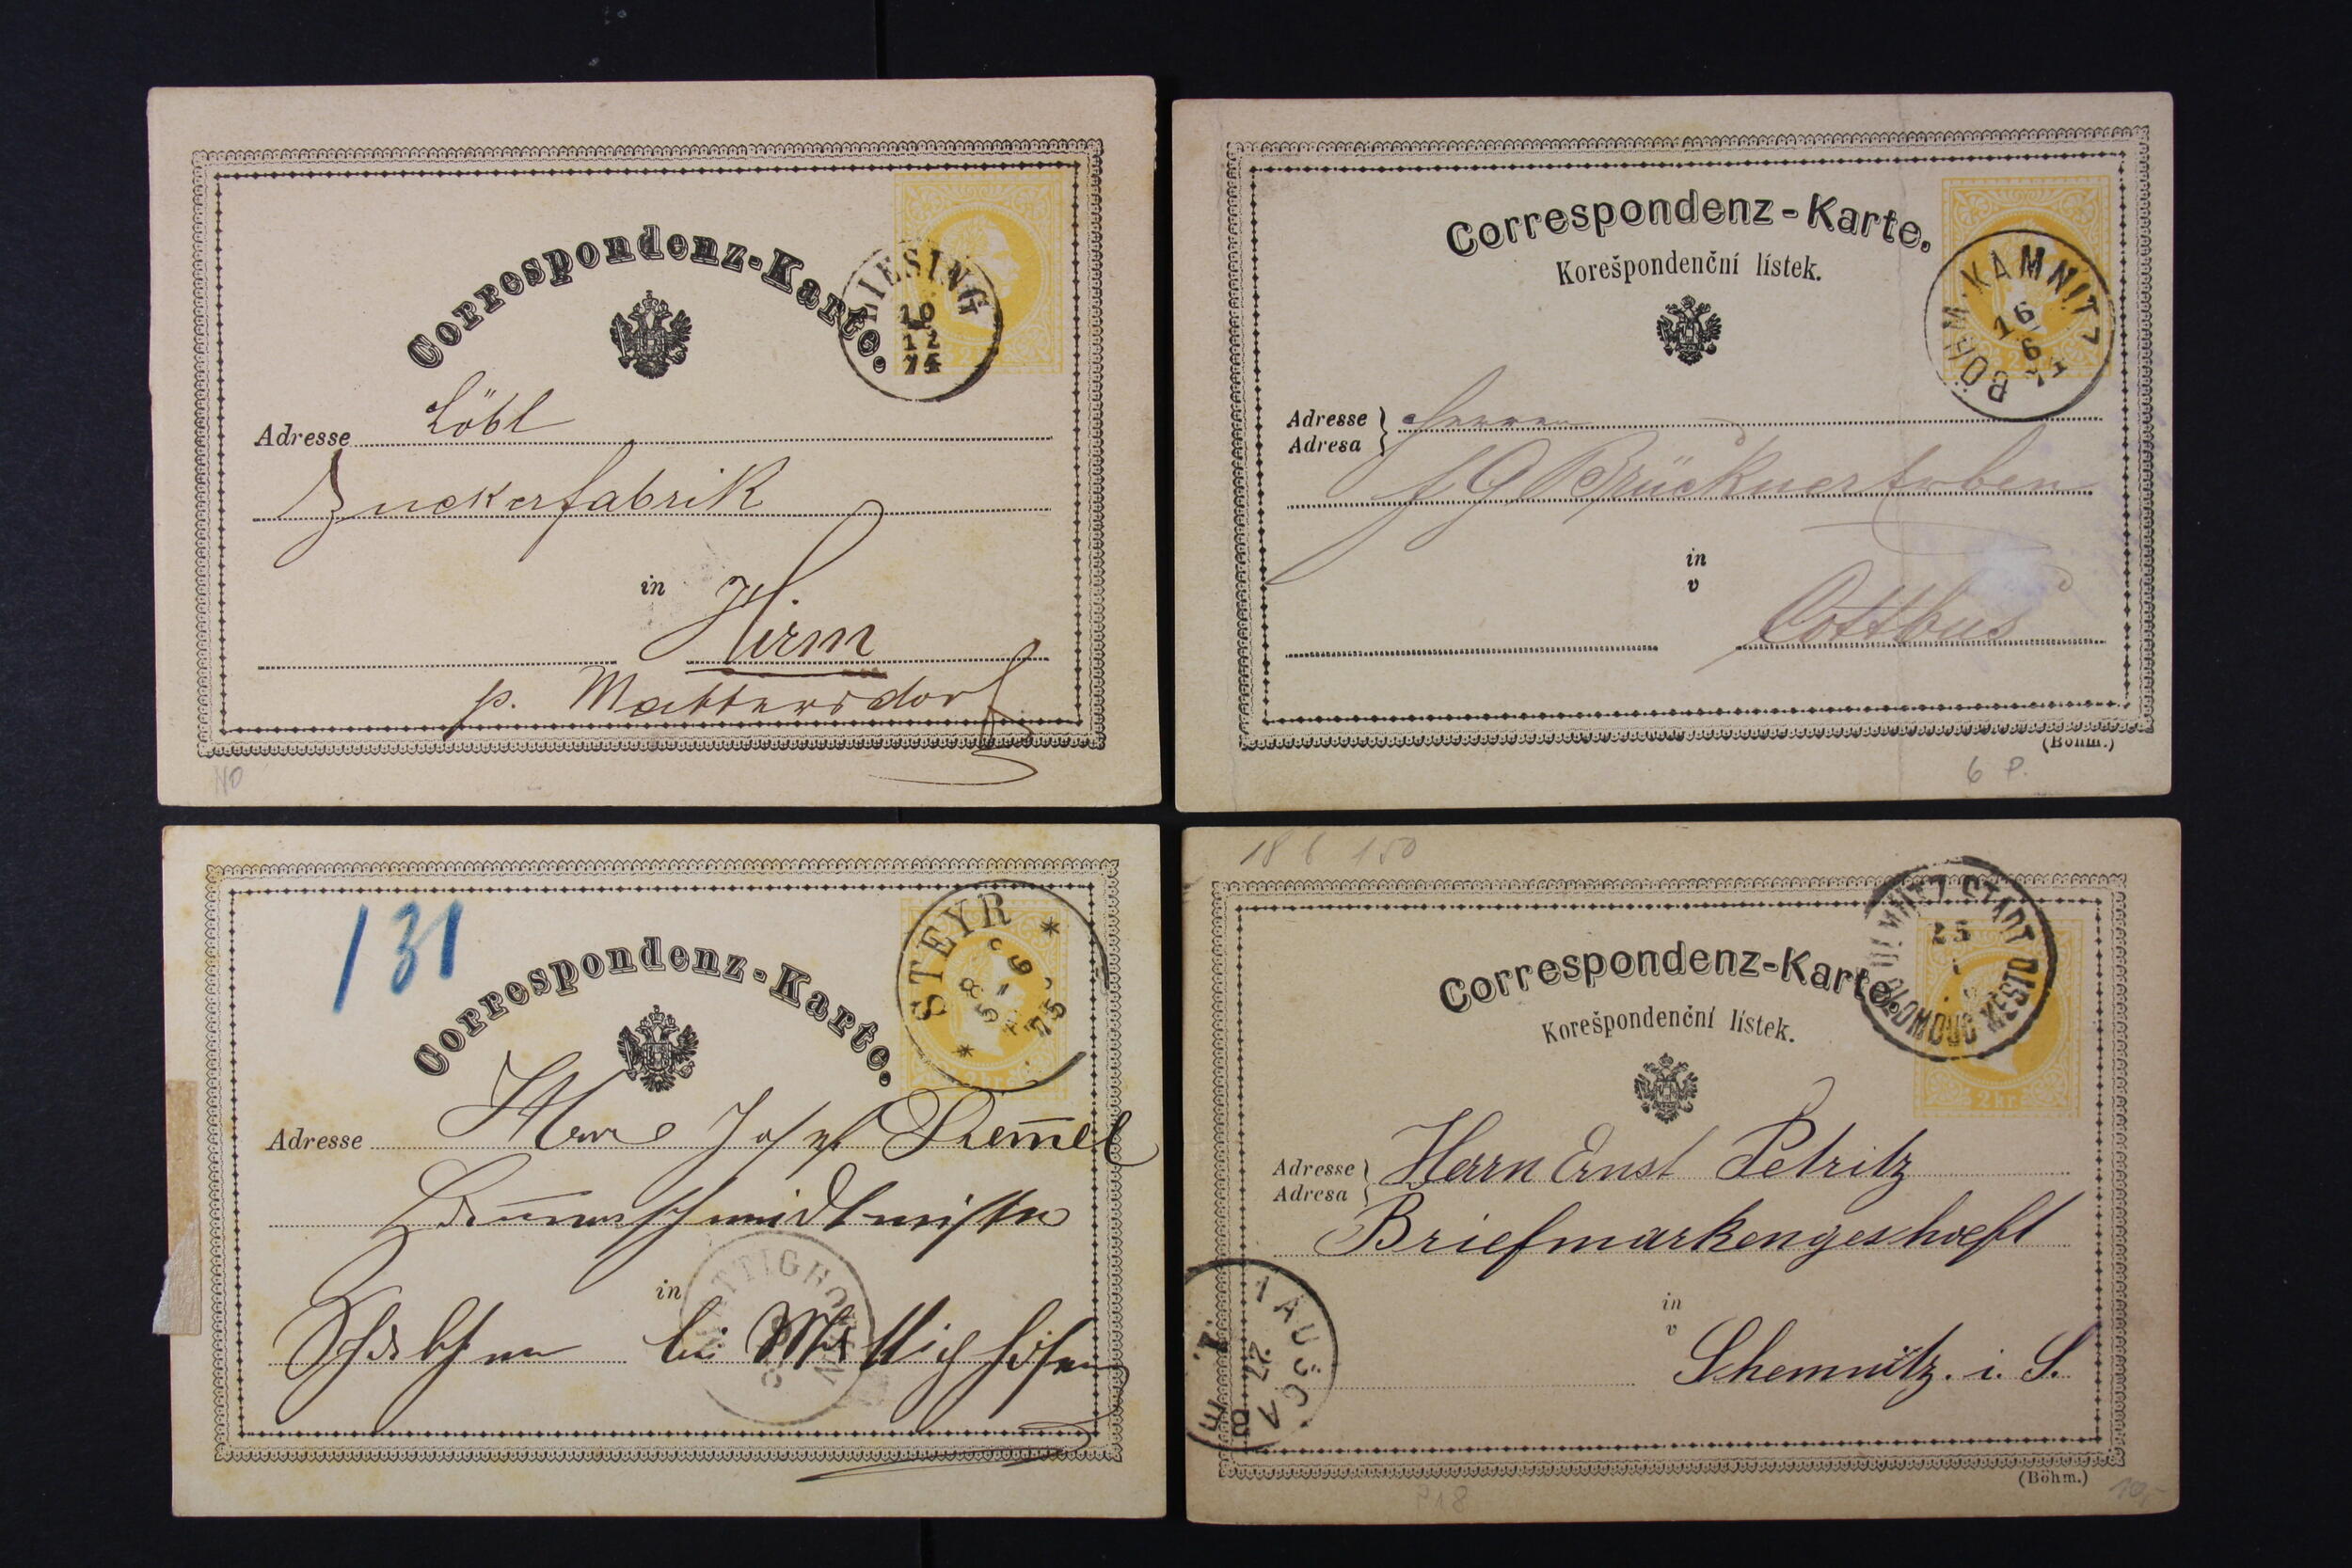 Correspondenz-Karte.
LIESING
10
12
74
Adresse Löbl
Zuckerfabrik
in Hirm
p. Mattersdorf
NO
Correspondenz-Karte.
Korešpondenční lístek.
BÖHM. KAMNITZ
16
6
77
Adresse } Herren
Adresa
J G Brückner
in
v
Cottbus
(Böhm.)
6 P.
131
Correspondenz-Karte.
STEYR
75
2 kr.
Adresse Herrn Josef
in
bei Mattighofen
MATTIGHOFEN
18 6 150
Correspondenz-Karte.
Korešpondenční lístek.
OLMÜTZ STADT
25
OLOMOUC MĚSTO
2 kr.
Adresse } Herrn Ernst Petritz
Adresa
Briefmarkengeshoeft
in
v
Chemnitz. i. S.
(Böhm.)
P18
10,-